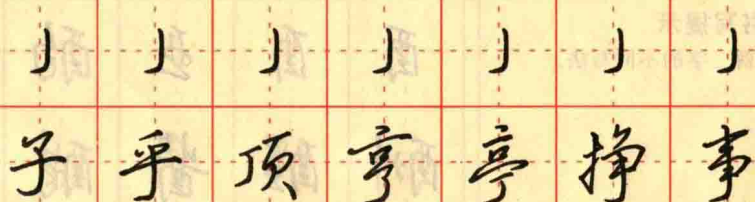 亅 亅 亅 亅 亅 亅 亅
子 乎 顶 亨 亭 挣 事